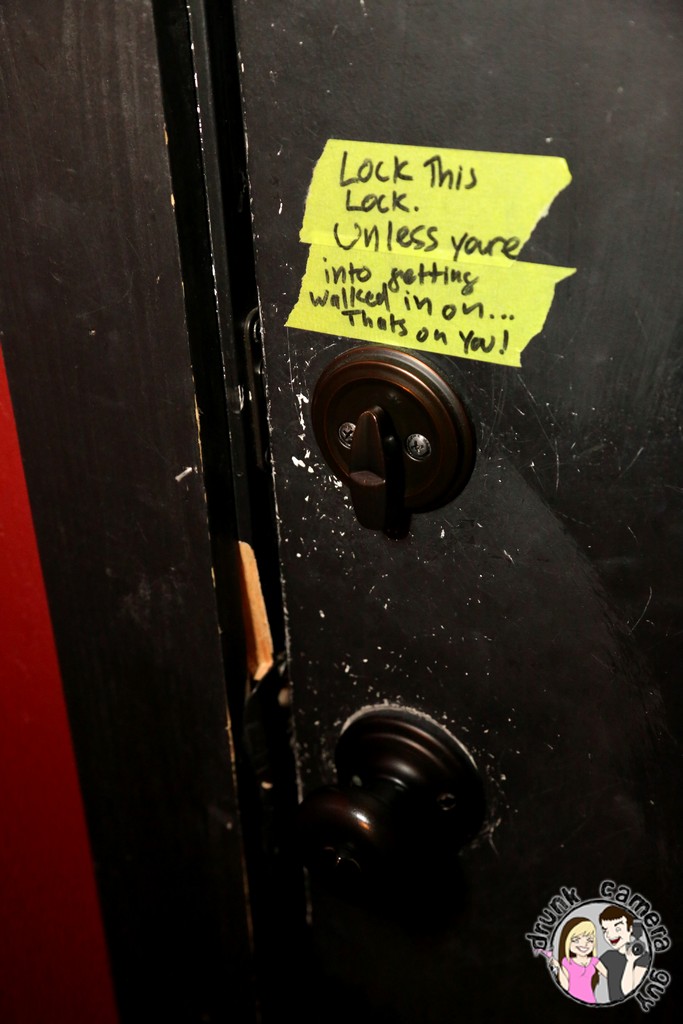 Lock This
Lock.
Unless youre
into getting
walked in on...
Thats on You!
drunk camera guy